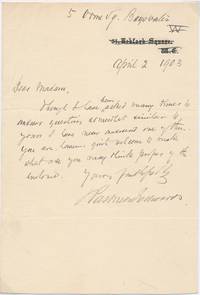 5 Orme Sq. Bayswater
W
April 2 1903
Dear Madam,
Though I have been asked many times to
answer questions somewhat similar to
yours I have never answered one of them.
You are however quite welcome to make
what use you may think proper of the
enclosed.
Yours faithfully